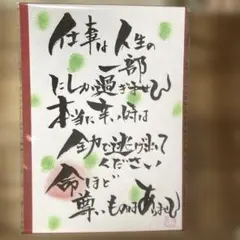 仕事は人生の
一部
にしか過ぎません
本当に辛い時は
全力で逃げ出して
ください
命ほど
尊いものはありません